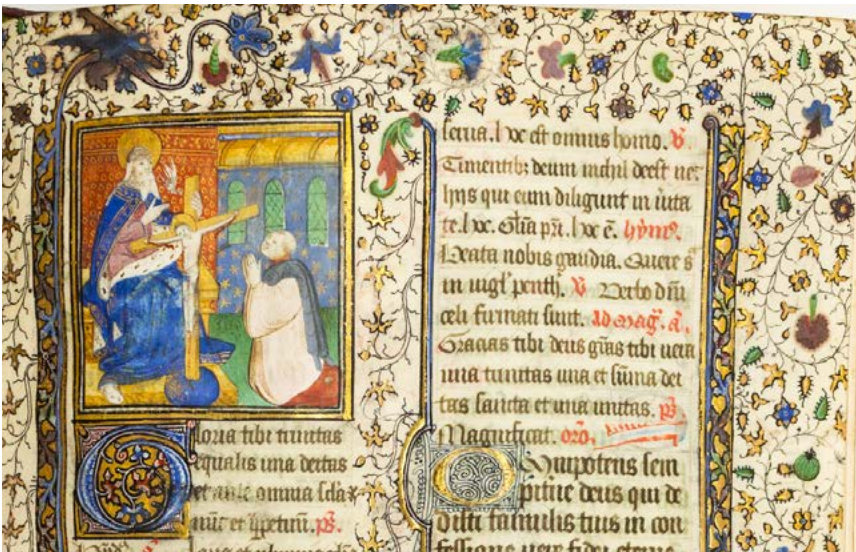 Gloria tibi trinitas
equalis una deitas
et ante omnia scła
nūc et īppetuū. ps̄.
seria. hoc est omnis homo. V̄
Timentibꝫ deum nichil deest nec
hijs qui eum diligunt in ūita
te. hoc. Glīa pr̄i. hoc ē. hymꝰ.
Beata nobis gaudia. Quere s̄
in uigl' penth. V̄ Verbo dn̄i
celi firmati sunt. ad maḡ. a͞.
Gracias tibi deus gr̄as tibi uera
una trinitas una et sūma dei
tas sancta et una unitas. ps̄.
Magnificat. oro͞.
Omnipotens sem
pitne deus qui de
disti famulis tuis in con
fessione uere fidei eterne